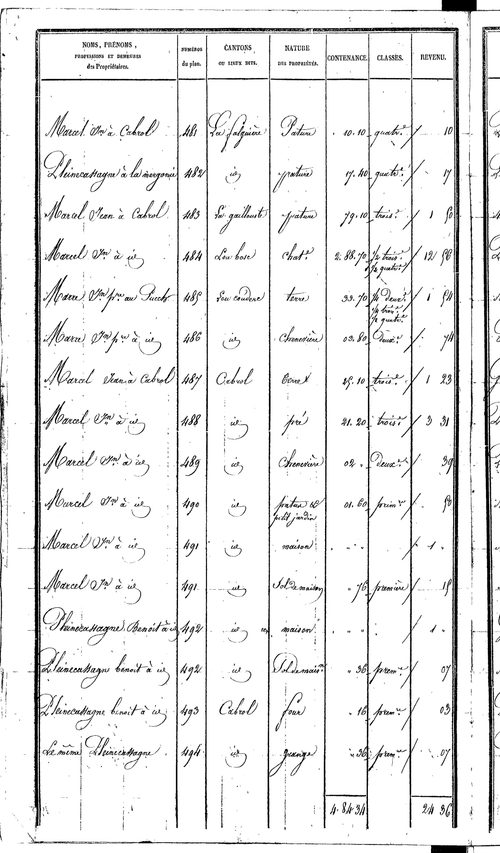 NOMS, PRÉNOMS, PROFESSIONS ET DEMEURES des Propriétaires. NUMÉROS du plan. CANTONS OU LIEUX DITS. NATURE DES PROPRIÉTÉS. CONTENANCE. CLASSES. REVENU.
Marcel Jn à Cabrol 481 La falguière Pature 10.10 quatr.e / 10
Pleinecassagne à la 482 id pature 17.40 quatr.e / 17
Marcel Jean à Cabrol 483 La gaillouste pature 79.10 trois.e / 1 50
Marcel Jn à id 484 Lou bosc chat.e 2.88.70 1/2 trois.e / 12 56
1/2 quatr.e
Marre Jn pre au Puech 485 Lou couderc terre 33.70 1/4 deux.e / 1 54
1/4 trois.e
1/2 quatr.e
Marre Jn pre à id 486 id Chenevière 03.80 Deux.e / 74
Marcel Jean à Cabrol 487 Cabrol terre 25.10 trois.e / 1 23
Marcel Jn à id 488 id pré 21.20 trois.e / 3 31
Marcel Jn à id 489 id Chenevière 02 " Deux.e / 39
Marcel Jn à id 490 id pature et 01.60 prem.e / 50
petit jardin
Marcel Jn à id 491 id maison " " / 1 "
Marcel Jn à id 491 id Sol de maison " 76 première / 15
Pleinecassagne Benoit à id 492 id maison " " / 1 "
Pleinecassagne benoit à id 492 id Sol de mais.n " 36 prem.e / 07
Pleinecassagne benoit à id 493 Cabrol four 16 prem.e / 03
Le même Pleinecassagne 494 id grange " 36 prem.e / 07
4.84.34 24 36